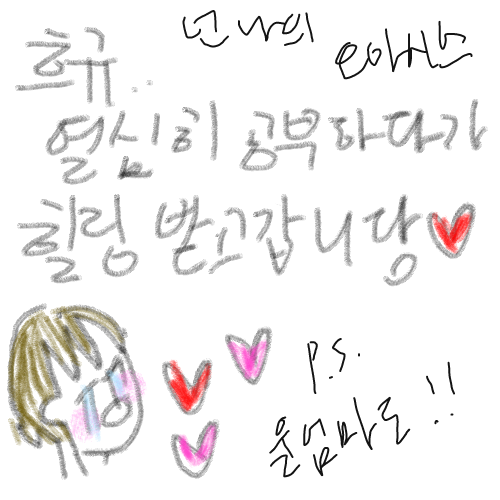 넌 나의
오아시스
흐규..
열심히 공부하다가
힐링 받고갑니당
p.s.
울엄마도!!